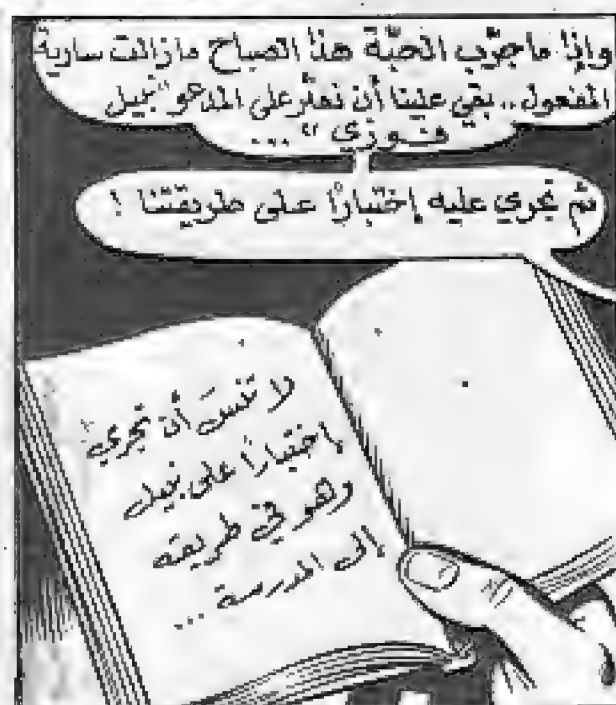 وإذا ما جرّب الحبّة هذا الصباح مازالت سارية
المفعول.. بقي علينا أن نعثر على المدعو "نبيل
فوزي" ...
ثم نجري عليه إختبارًا على طريقتنا !
لا تنسَ أن تجري
إختبارًا على نبيل
وهو في طريقه
إلى المدرسة ...